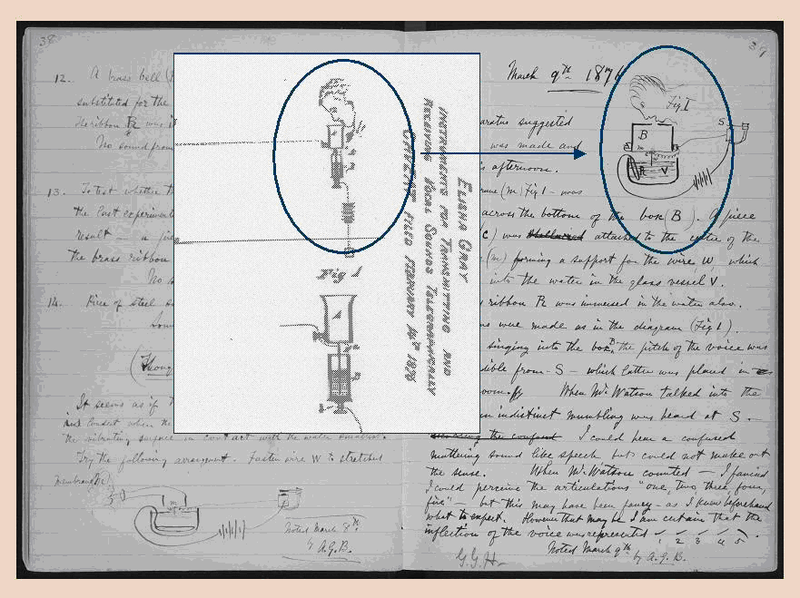 38
12. A brass bell (
substituted for the
the ribbon R was i
No sound from
13. To test whether t
the last experiment
result — a
the brass ribbon
No s
14. Piece of steel
It seems as if
and contact when the
the vibrating surface in contact with the water
Try the following arrangement. Fasten wire W to stretched
membrane
Noted March 8th
by A.G.B.
ELISHA GRAY
INSTRUMENTS FOR TRANSMITTING AND
RECEIVING VOCAL SOUNDS TELEGRAPHICALLY
CAVEAT FILED FEBRUARY 14th 1876
Fig 1
39
March 9th 1876
Fig 1
S
B
R V
aratus suggested
was made and
s afternoon.
(m) Fig 1 — was
across the bottom of the box (B). A piece
c) was attached to the centre of the
(m) forming a support for the wire, W which
into the water in the glass vessel V.
ribbon R was immersed in the water also.
were made as in the diagram (Fig 1).
singing into the box B, the pitch of the voice was
dible from S — which latter was placed in
room. When Mr. Watson talked into the
an indistinct mumbling was heard at S.
I could hear a confused
muttering sound like speech but could not make out
the sense. When Mr. Watson counted — I fancied
I could perceive the articulations "one, two, three, four,
five" — but this may have been fancy — as I knew beforehand
what to expect. However that may be I am certain that the
inflection of the voice was represented
1 2 3 4 5
Noted March 9th by A.G.B.
G.G.H.